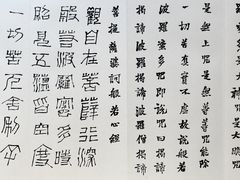 是無上呪是無等等呪能除
一切苦真實不虛故說般若
波羅蜜多呪即說呪曰揭諦
揭諦波羅揭諦波羅僧揭諦
菩提薩婆訶般若心經
觀自在菩薩行深
般若波羅蜜多時
照見五蘊皆空度
一切苦厄舍利子